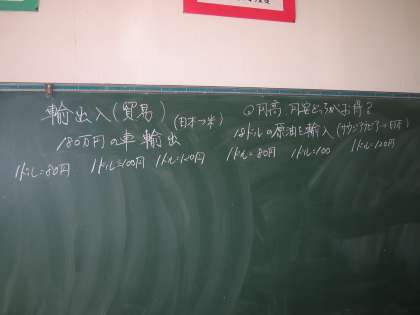 輸出入(貿易)
(日本→米)
180万円の車 輸出
1ドル=80円 1ドル=100円 1ドル=120円
Q円高、円安どっちがお得?
18ドルの原油を輸入(サウジアラビア→日本)
1ドル=80円 1ドル=100 1ドル=120円